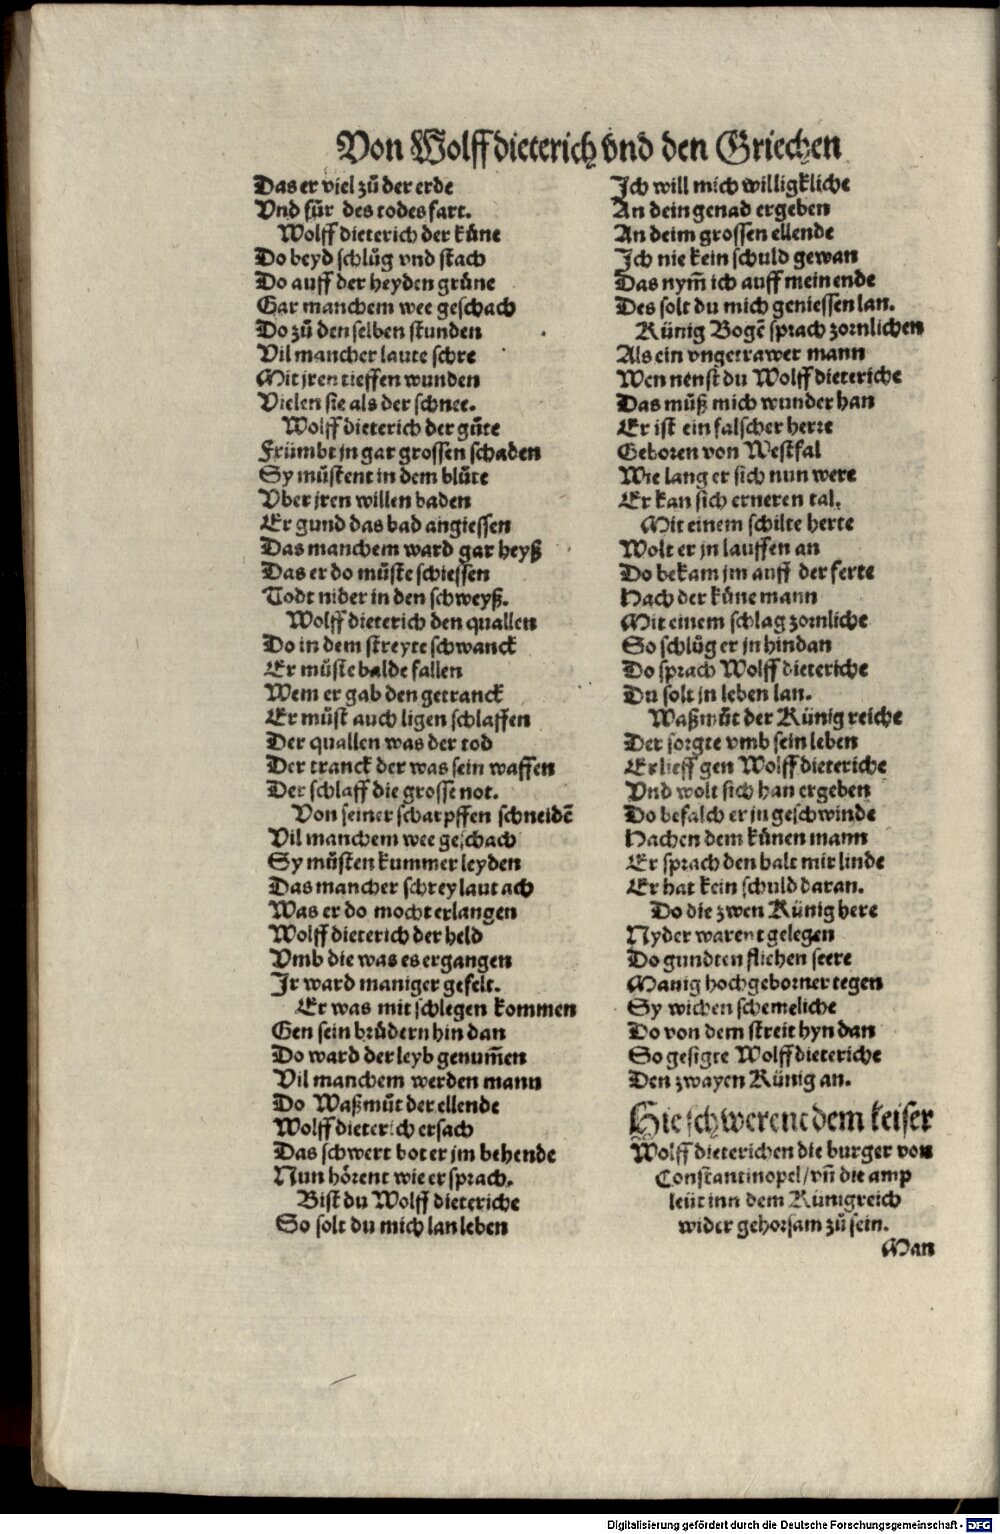 Von Wolffdieterich vnd den Griechen
Das er viel zů der erde
Vnd für des todes fart.
Wolff dieterich der küne
Do beyd schlůg vnd stach
Do auff der heyden grüne
Gar manchem wee geschach
Do zů den selben stunden
Vil mancher laute schre
Mit jren tieffen wunden
Vielen sie als der schnee.
Wolff dieterich der gůte
Frümbt jn gar grossen schaden
Sy můstent in dem blůte
Vber jren willen baden
Er gund das bad angiessen
Das manchem ward gar heyß
Das er do můste schiessen
Todt nider in den schweyß.
Wolff dieterich den quallen
Do in dem streyte schwanck
Er můste balde fallen
Wem er gab den getranck
Er můst auch ligen schlaffen
Der quallen was der tod
Der tranck der was sein waffen
Der schlaff die grosse not.
Von seiner scharpffen schneidē
Vil manchem wee geschach
Sy můsten kummer leyden
Das mancher schrey laut ach
Was er do mocht erlangen
Wolff dieterich der held
Vmb die was es ergangen
Jr ward maniger gefelt.
Er was mit schlegen kommen
Gen sein brüdern hin dan
Do ward der leyb genum̄en
Vil manchem werden mann
Do Waßmůt der ellende
Wolff dieterich ersach
Das schwert bot er jm behende
Nun hörent wie er sprach.
Bist du Wolff dieteriche
So solt du mich lan leben
Jch will mich willigkliche
An dein genad ergeben
An deim grossen ellende
Jch nie kein schuld gewan
Das nym̄ ich auff mein ende
Des solt du mich geniessen lan.
Künig Bogē sprach zornlichen
Als ein vngetrawer mann
Wen nenst du Wolff dieteriche
Das můß mich wunder han
Er ist ein falscher herre
Geboren von Westfal
Wie lang er sich nun were
Er kan sich erneren tal.
Mit einem schilte herte
Wolt er jn lauffen an
Do bekam jm auff der ferte
Hach der küne mann
Mit einem schlag zornliche
So schlůg er jn hindan
Do sprach Wolff dieteriche
Du solt jn leben lan.
Waßmůt der Künig reiche
Der sorgte vmb sein leben
Er lieff gen Wolff dieteriche
Vnd wolt sich han ergeben
Do befalch er jn geschwinde
Hachen dem künen mann
Er sprach den halt mir linde
Er hat kein schuld daran.
Do die zwen Künig here
Nyder warent gelegen
Do gundten fliehen seere
Manig hochgeborner tegen
Sy wichen schemeliche
Do von dem streit hyn dan
So gesigte Wolff dieteriche
Den zwayen Künig an.
Hie schwerent dem keiser
Wolff dieterichen die burger von
Constantinopel/ vn̄ die amp
leüt inn dem Künigreich
wider gehorsam zů sein.
Man
Digitalisierung gefördert durch die Deutsche Forschungsgemeinschaft - DFG